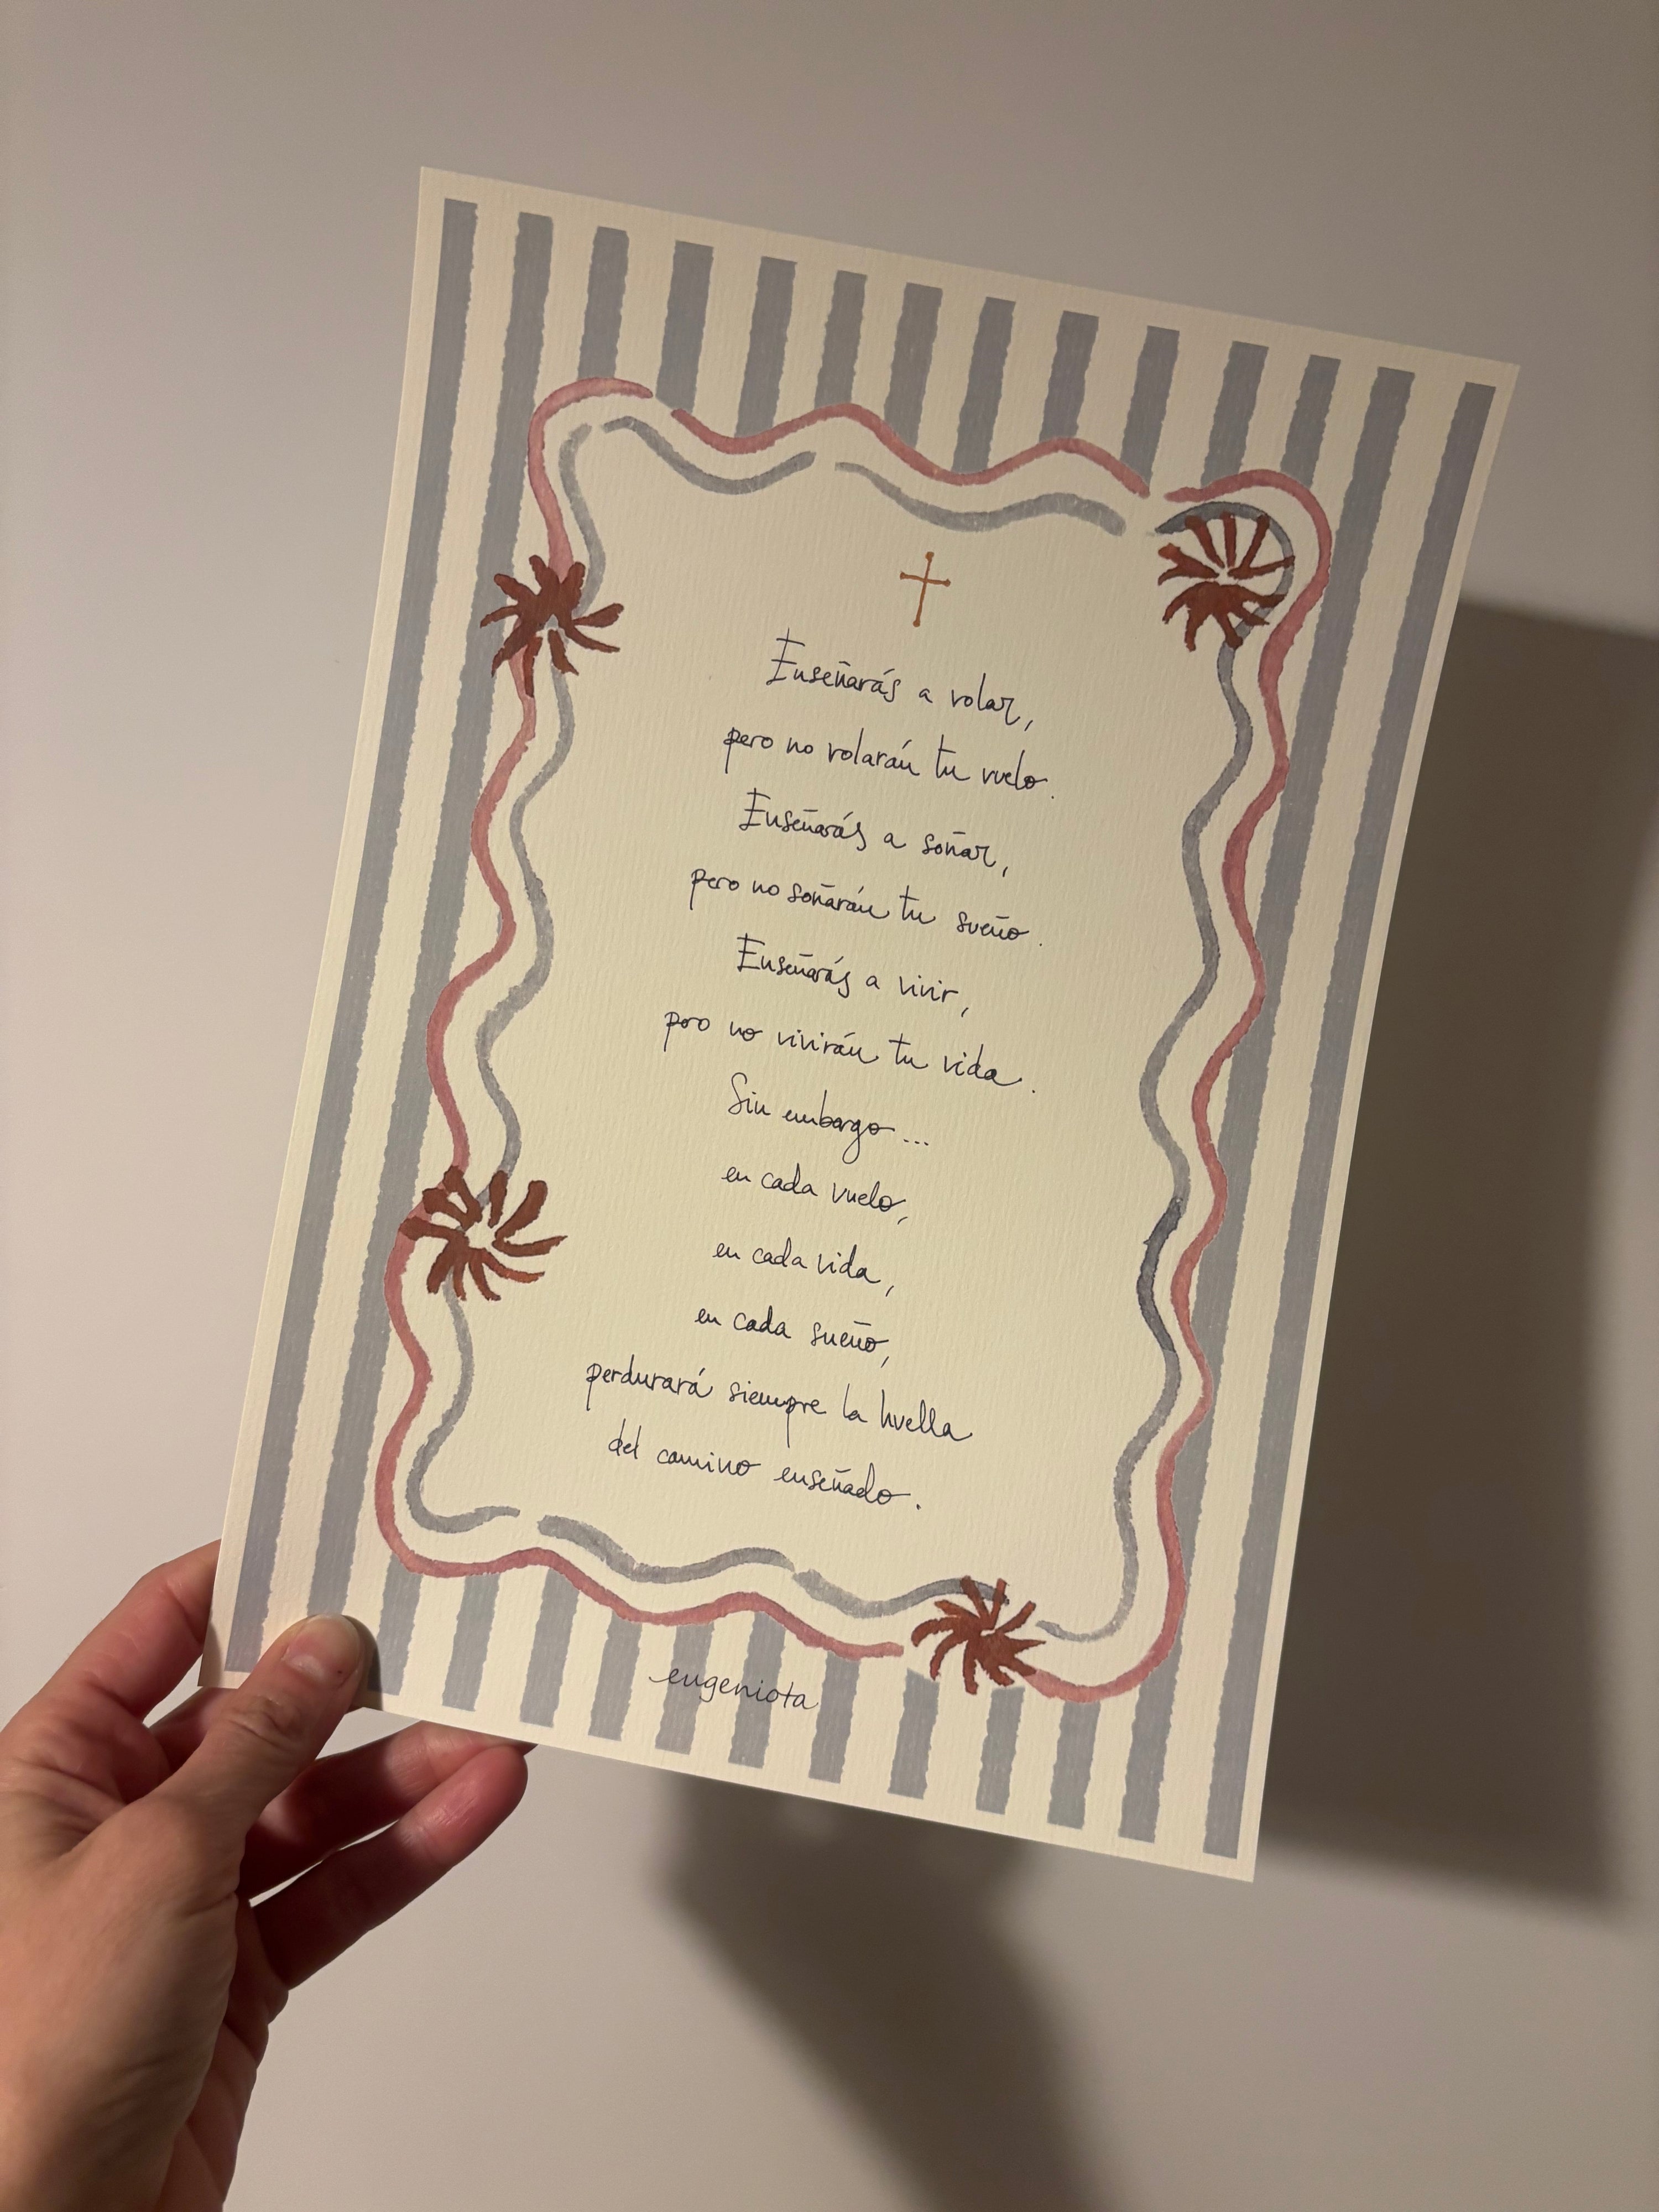 Enseñarás a volar,
pero no volarán tu vuelo.
Enseñarás a soñar,
pero no soñarán tu sueño.
Enseñarás a vivir,
pero no vivirán tu vida.
Sin embargo...
en cada vuelo,
en cada vida,
en cada sueño,
perdurará siempre la huella
del camino enseñado.
eugeniota